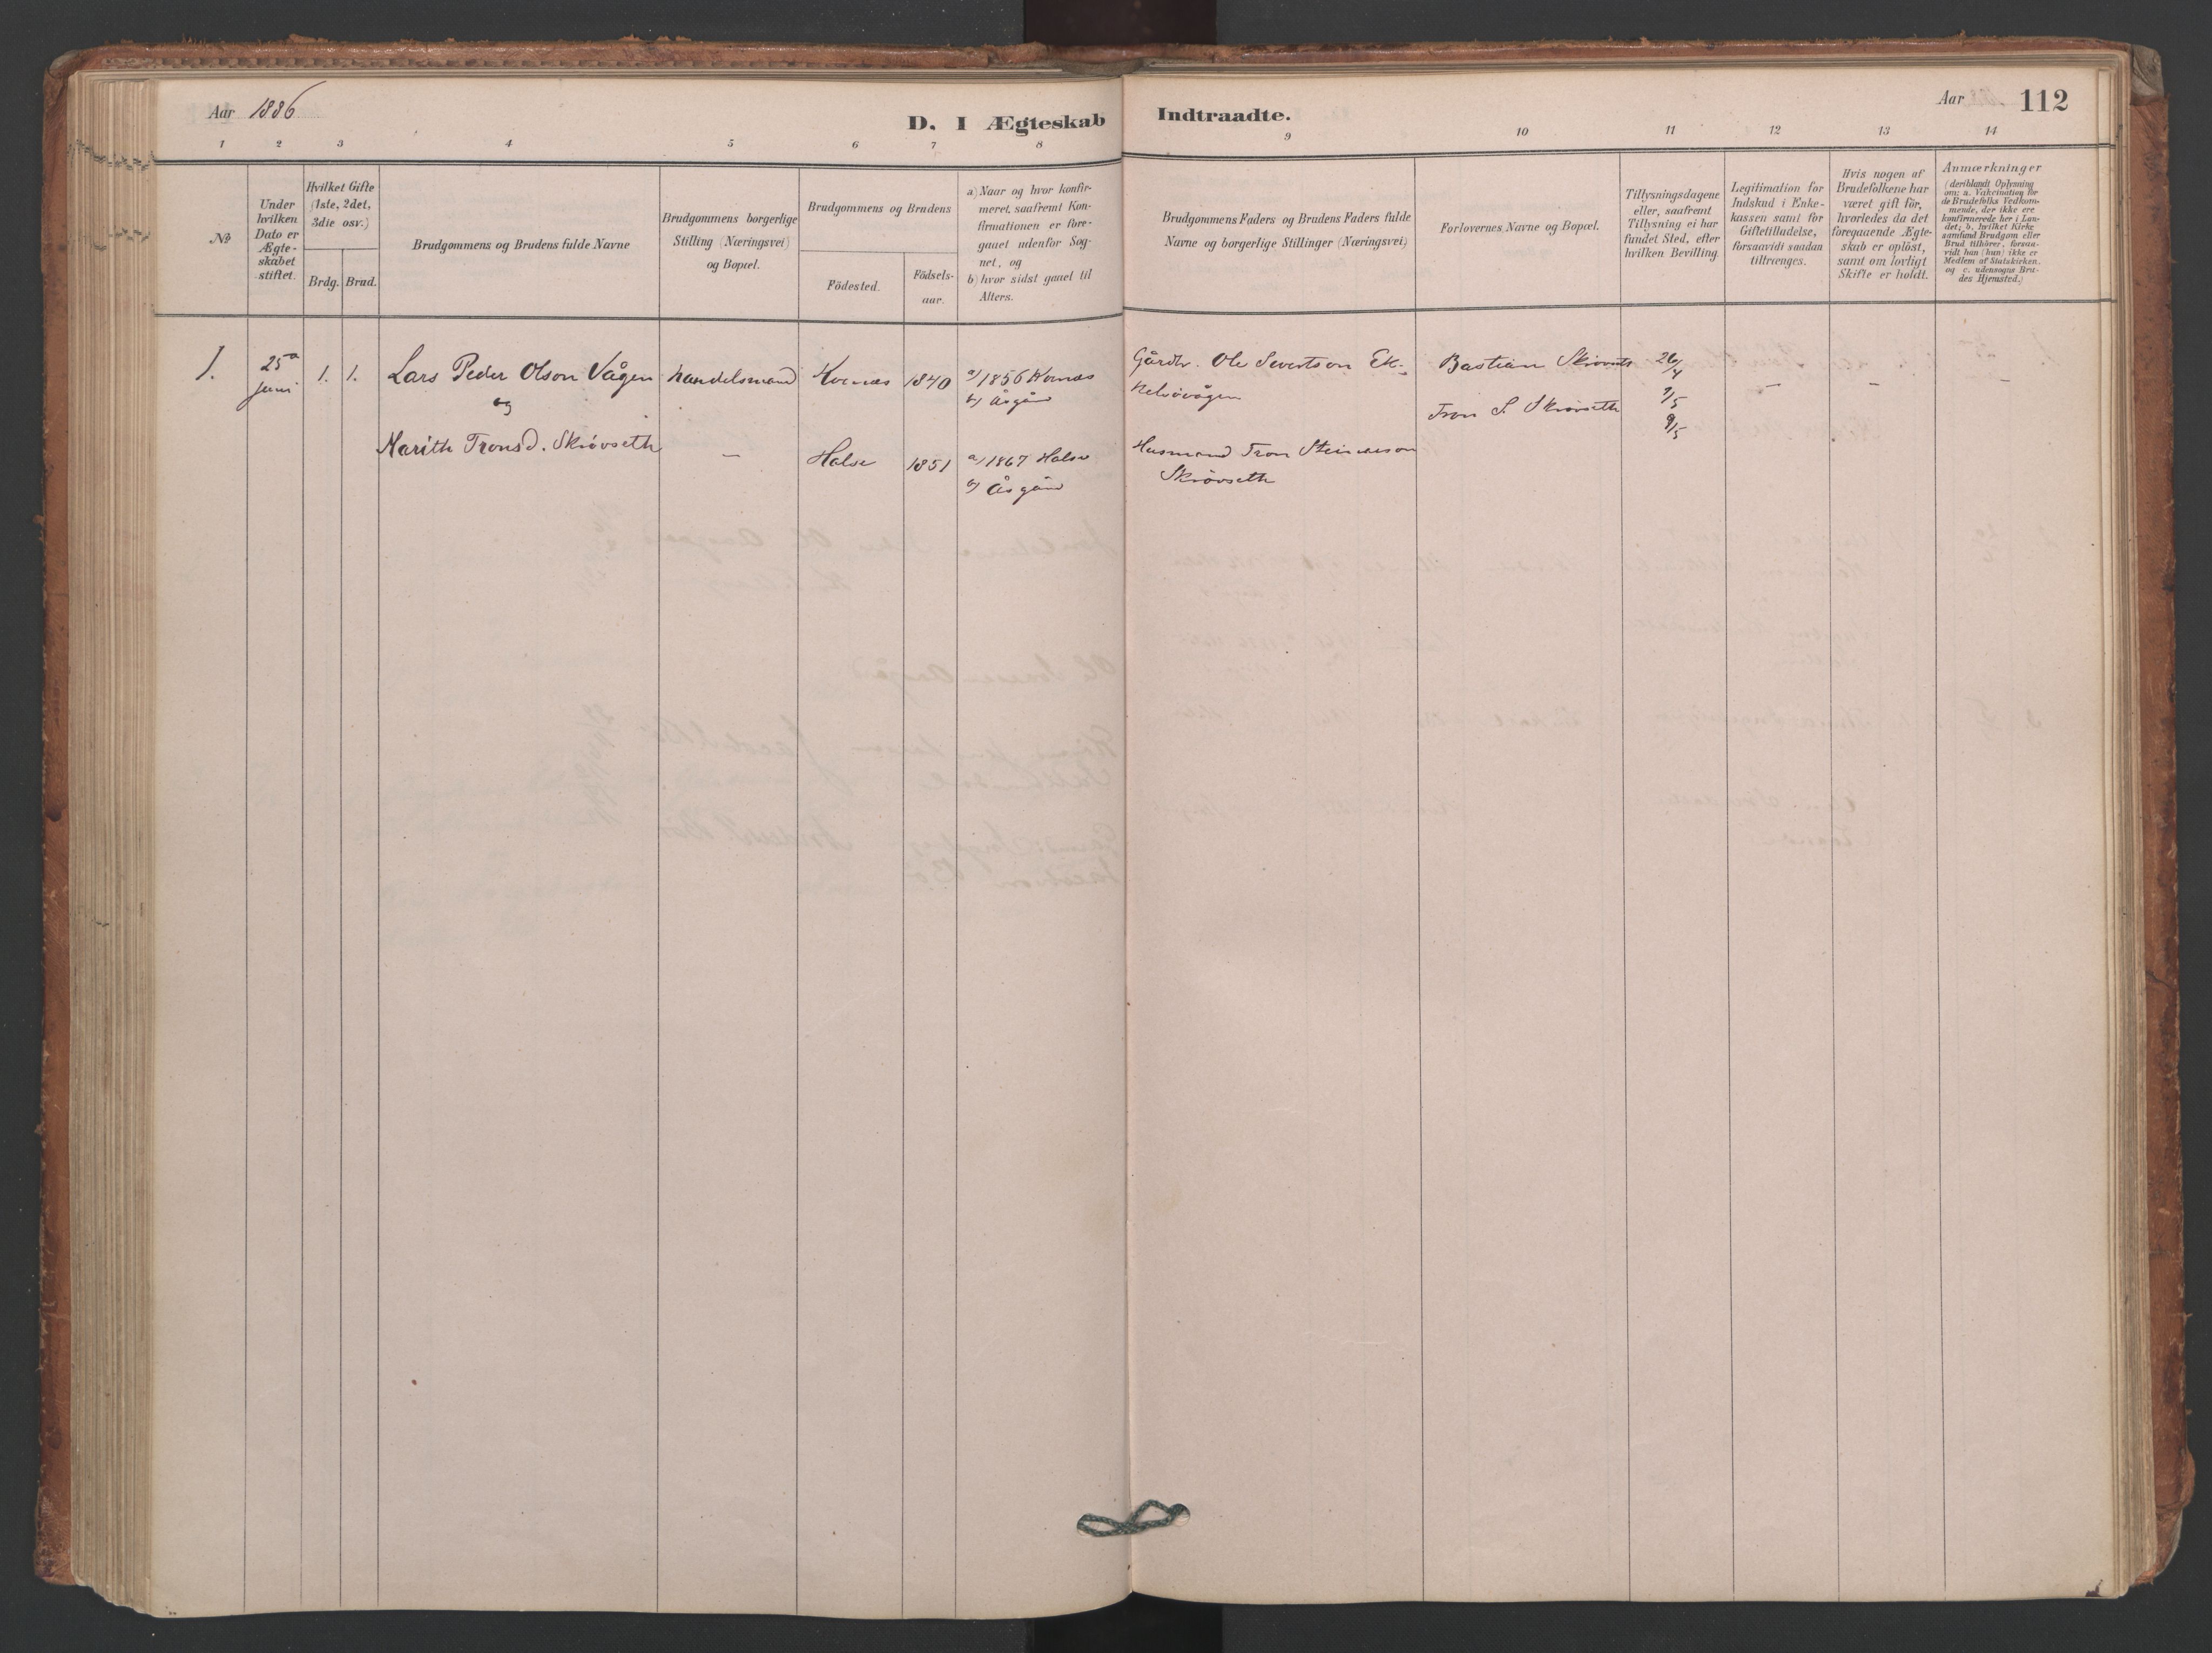 Aar 1886
D. I Ægteskab Indtraadte.
Aar 112
1 2 3 4 5 6 7 8 9 10 11 12 13 14
№
Under
hvilken
Dato er
Ægte-
skabet
stiftet.
Hvilket Gifte
(1ste, 2det,
3die osv.)
Brdg. Brud.
Brudgommens og Brudens fulde Navne
Brudgommens borgerlige
Stilling (Næringsvei)
og Bopæl.
Brudgommens og Brudens
Födested.
Födsels-
aar.
a) Naar og hvor konfir-
meret, saafremt Kon-
firmationen er fore-
gaaet udenfor Sog-
net, og
b) hvor sidst gaaet til
Alters.
Brudgommens Faders og Brudens Faders fulde
Navne og borgerlige Stillinger (Næringsvei)
Forlovernes Navne og Bopæl.
Tillysningsdagene
eller, saafremt
Tillysning ei har
fundet Sted, efter
hvilken Bevilling.
Legitimation for
Indskud i Enke-
kassen samt for
Giftetilladelse,
forsaavidt saadan
tiltrænges.
Hvis nogen af
Brudefolkene har
været gift för,
hvorledes da det
foregaaende Ægte-
skab er oplöst,
samt om lovligt
Skifte er holdt.
Anmærkninger
(deriblandt Oplysning
om: a. Vakcination for
de Brudefolks Vedkom-
mende, der ikke ere
konfirmerede her i Lan-
det; b. hvilket Kirke
samfund Brudgom eller
Brud tilhörer, forsaa-
vidt han (hun) ikke er
Medlem af Statskirken.
og c. udensogns Bru-
des Hjemsted.)
1. 25 juni 1. 1. Lars Peder Olson Vågen handelsmand Kvernæs 1840 a) 1856 Kvernæs
b) Åsgård
og
Gårdbr. Ole Sivertson Ek-
kelsövågen
Bastian Skrövseth
Tron S. Skrövseth
26/4
2/5
9/5
– – –
Marith Tronsd. Skrövseth – Halse 1851 a) 1867 Halse
b) Åsgård
Husmand Tron Steinarson
Skrövseth